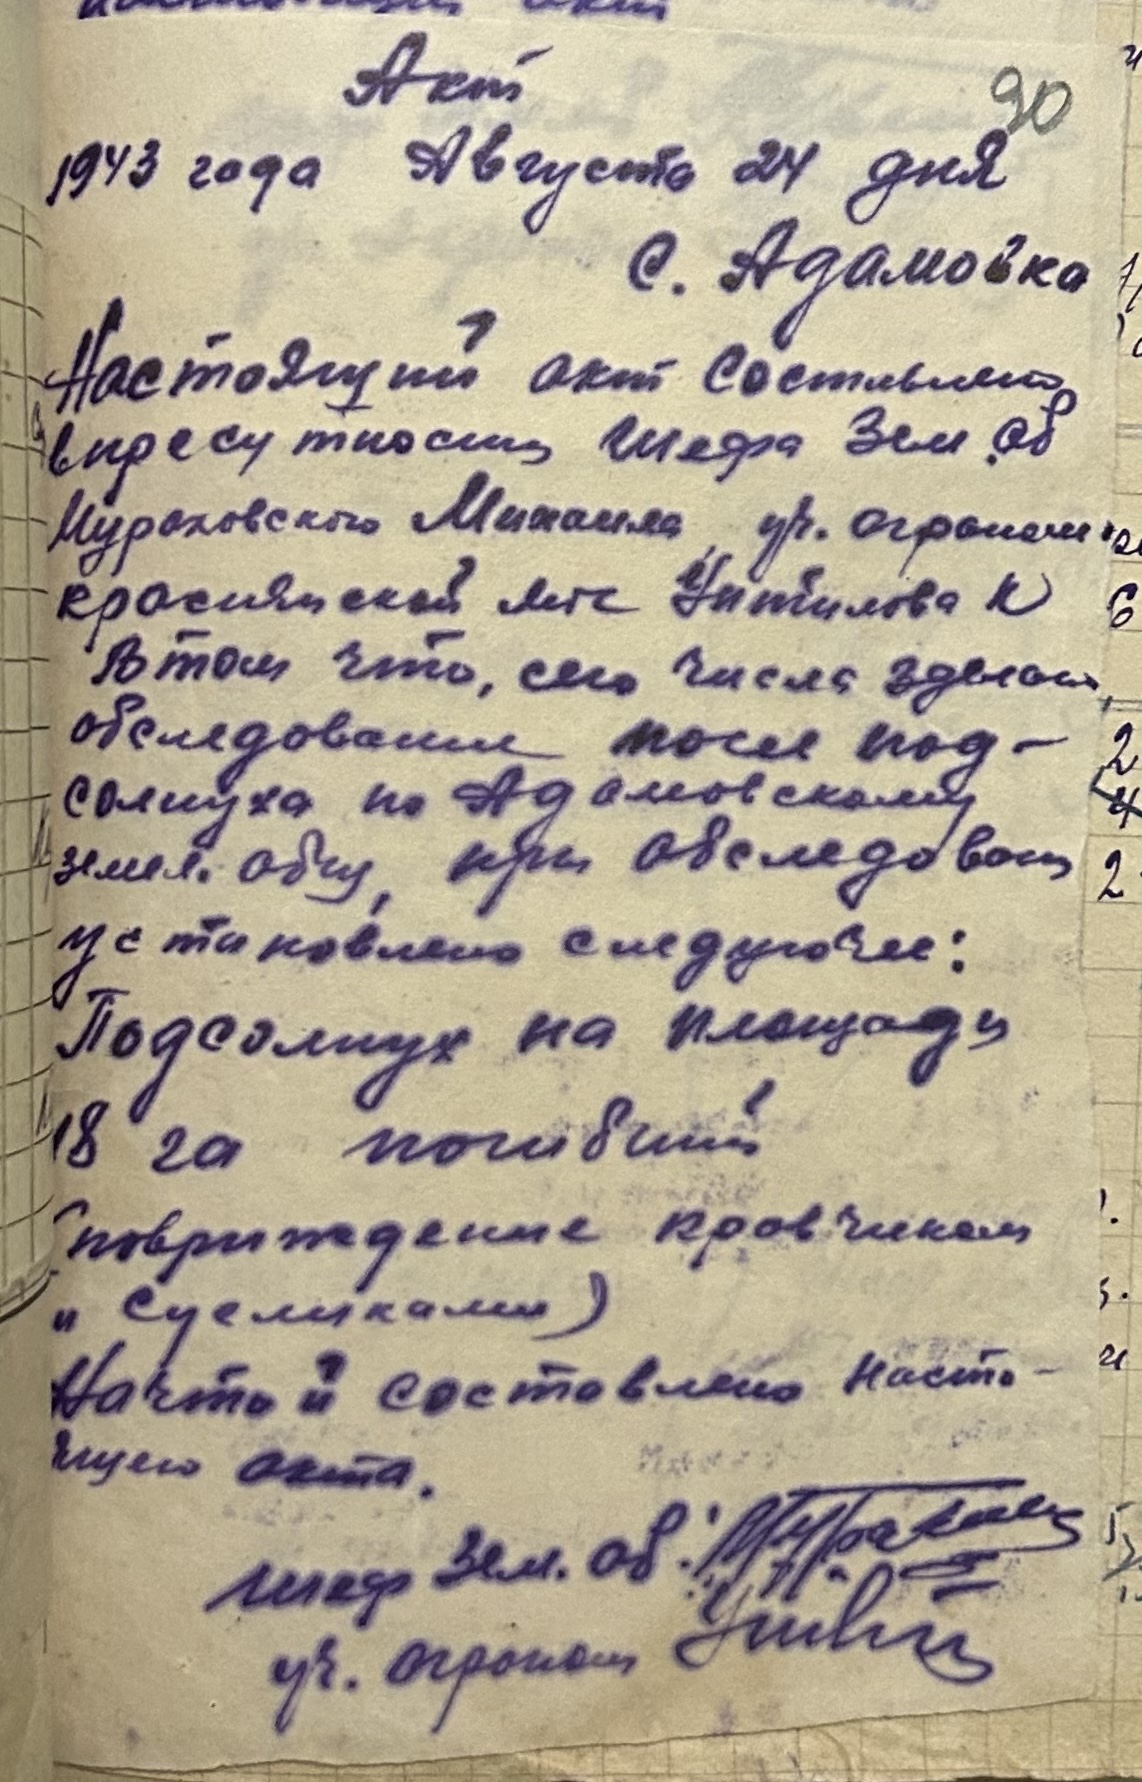 Акт
90
1943 года Августа 24 дня
С. Адамовка
Настоящий акт составлено
впресутносты Шефа Зем. об
Мураховского Михаила, уч. агроном
краснянской мтс
Втом что, сего числа зделано
обследование посев под-
солнуха по Адамовскому
земел. общ, при обследованы
установлено следующее:
Подсолнух на площады
18 га погибший
(повриждение кровчиком
и Сусликами)
Начто й составлено насто-
ящего акта.
шеф Зем. об.
уч. агроном